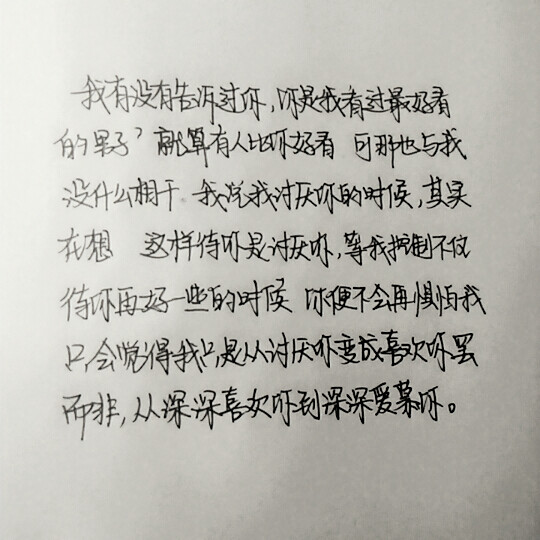 我有没有告诉过你,你是我有过最好看
的男子,就算有人比你好看 可那也与我
没什么相干。我说我讨厌你的时候,其实
在想 这样待你是讨厌你,等我抑制不住
待你再好一些的时候 你便不会再惧怕我
只会觉得我只是从讨厌你变成喜欢你罢
而非,从深深喜欢你到深深爱慕你。